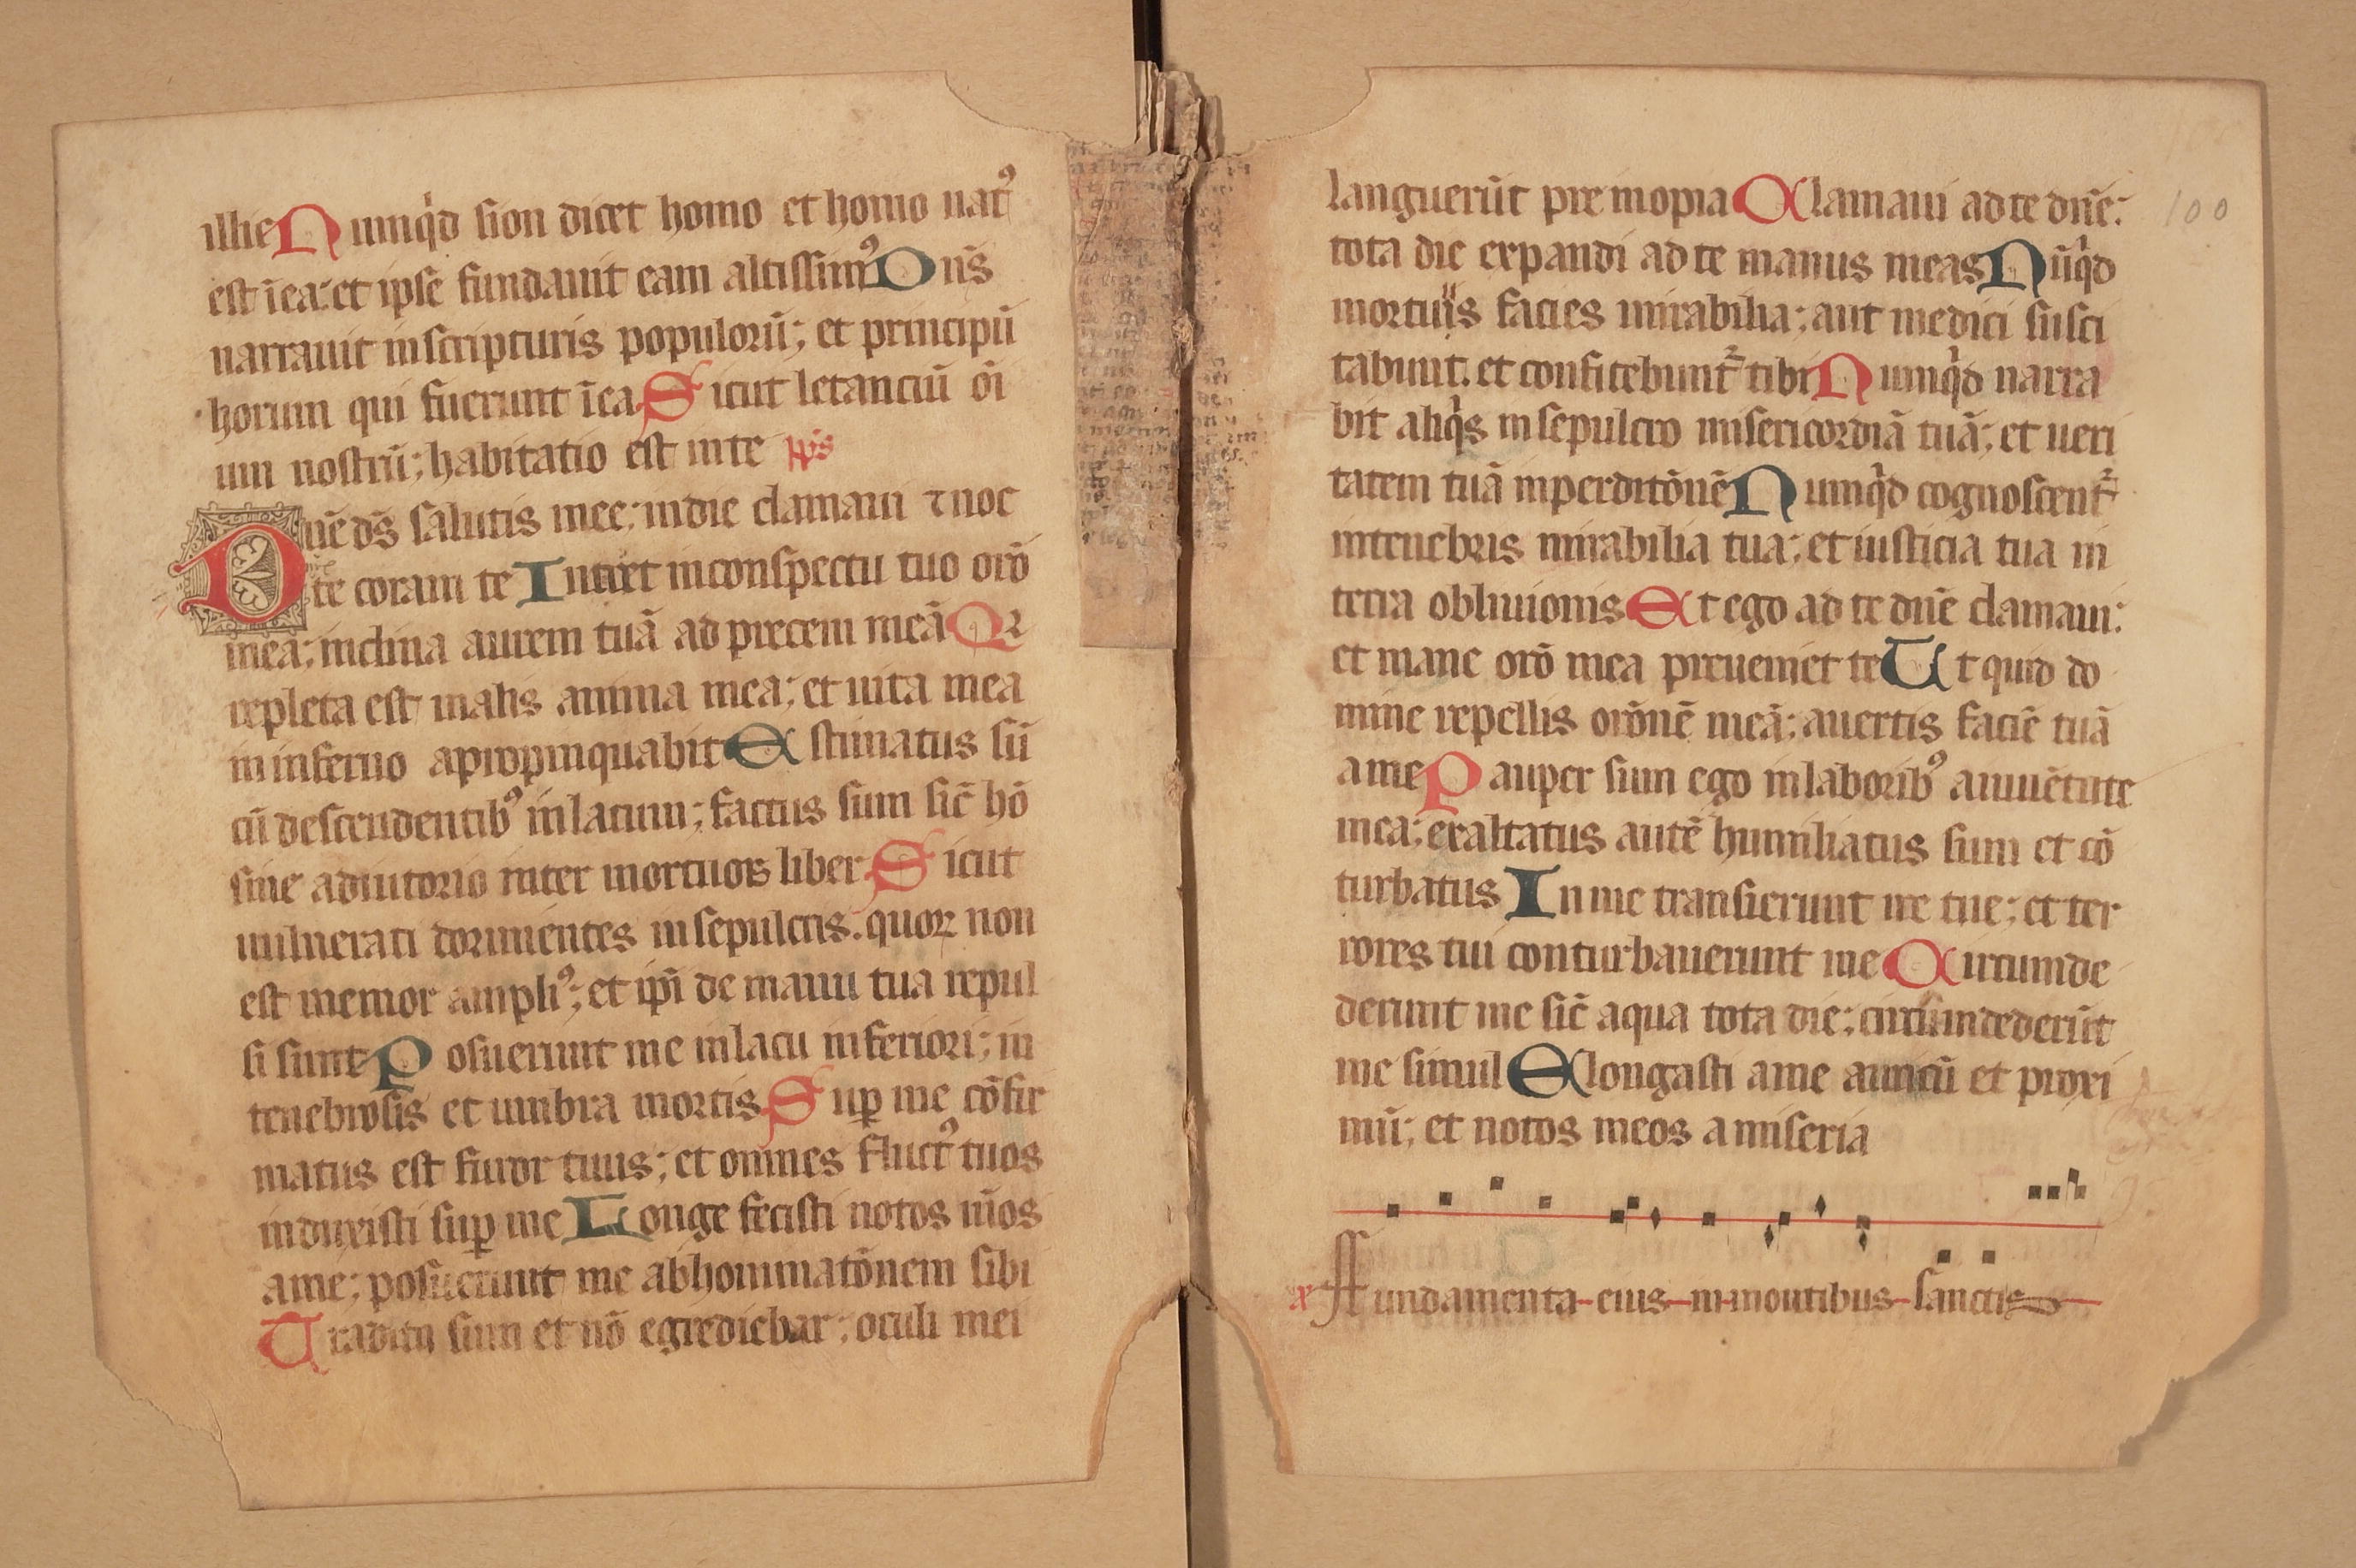 illic Numq̇d sion dicet homo et homo natꝰ
est ī ea: et ipse fundauit eam altissimꝰ Dn̄s
narrauit in scripturis populorū; et principū
horum qui fuerunt ī ea Sicut letanciū oī
um nostrū; habitatio est in te p̄s
Dn̄e ds̄ salutis mee: in die clamaui ⁊ noc
te coram te Intret in conspectu tuo orō
mea; inclina aurem tuā ad precem meā Qꝛ
repleta est malis anima mea; et uita mea
in inferno apropinquabit Estimatus sū
cū descendentibꝰ in lacum; factus sum sic̄ hō
sine adiutorio inter mortuos liber Sicut
uulnerati dormientes in sepulcris. quoꝝ non
est memor ampliꝰ; et ip̄i de manu tua repul
si sunt Posuerunt me in lacu inferiori; in
tenebrosis et umbra mortis Suꝑ me cōfir
matus est furor tuus; et omnes fluctꝰ tuos
induxisti suꝑ me Longe fecisti notos m̄os
a me; posuerunt me abhominatōnem sibi
Traditꝰ sum et nō egrediebar; oculi mei
languerūt pre inopia Clamaui ad te dn̄e:
tota die expandi ad te manus meas Nūq̇d
mortuis facies mirabilia; aut medici susci
tabunt. et confitebunt᷑ tibi Numq̇d narra
bit aliq̇s in sepulcro misericordiā tuā; et ueri
tatem tuā in perditōnē Numq̇d cognoscent᷑
in tenebris mirabilia tua; et iusticia tua in
terra obliuionis Et ego ad te dn̄e clamaui:
et mane orō mea preueniet te Ut quid do
mine repellis orōnē meā; auertis faciē tuā
a me Pauper sum ego in laboribꝰ a iuuētute
mea; exaltatus autē humiliatus sum et cō
turbatus In me transierunt ire tue; et ter
rores tui conturbauerunt me Circumde
derunt me sic̄ aqua tota die; circumdederūt
me simul Elongasti a me amicū et proxi
mū; et notos meos a miseria
Fundamenta eius in montibus sanctis
100